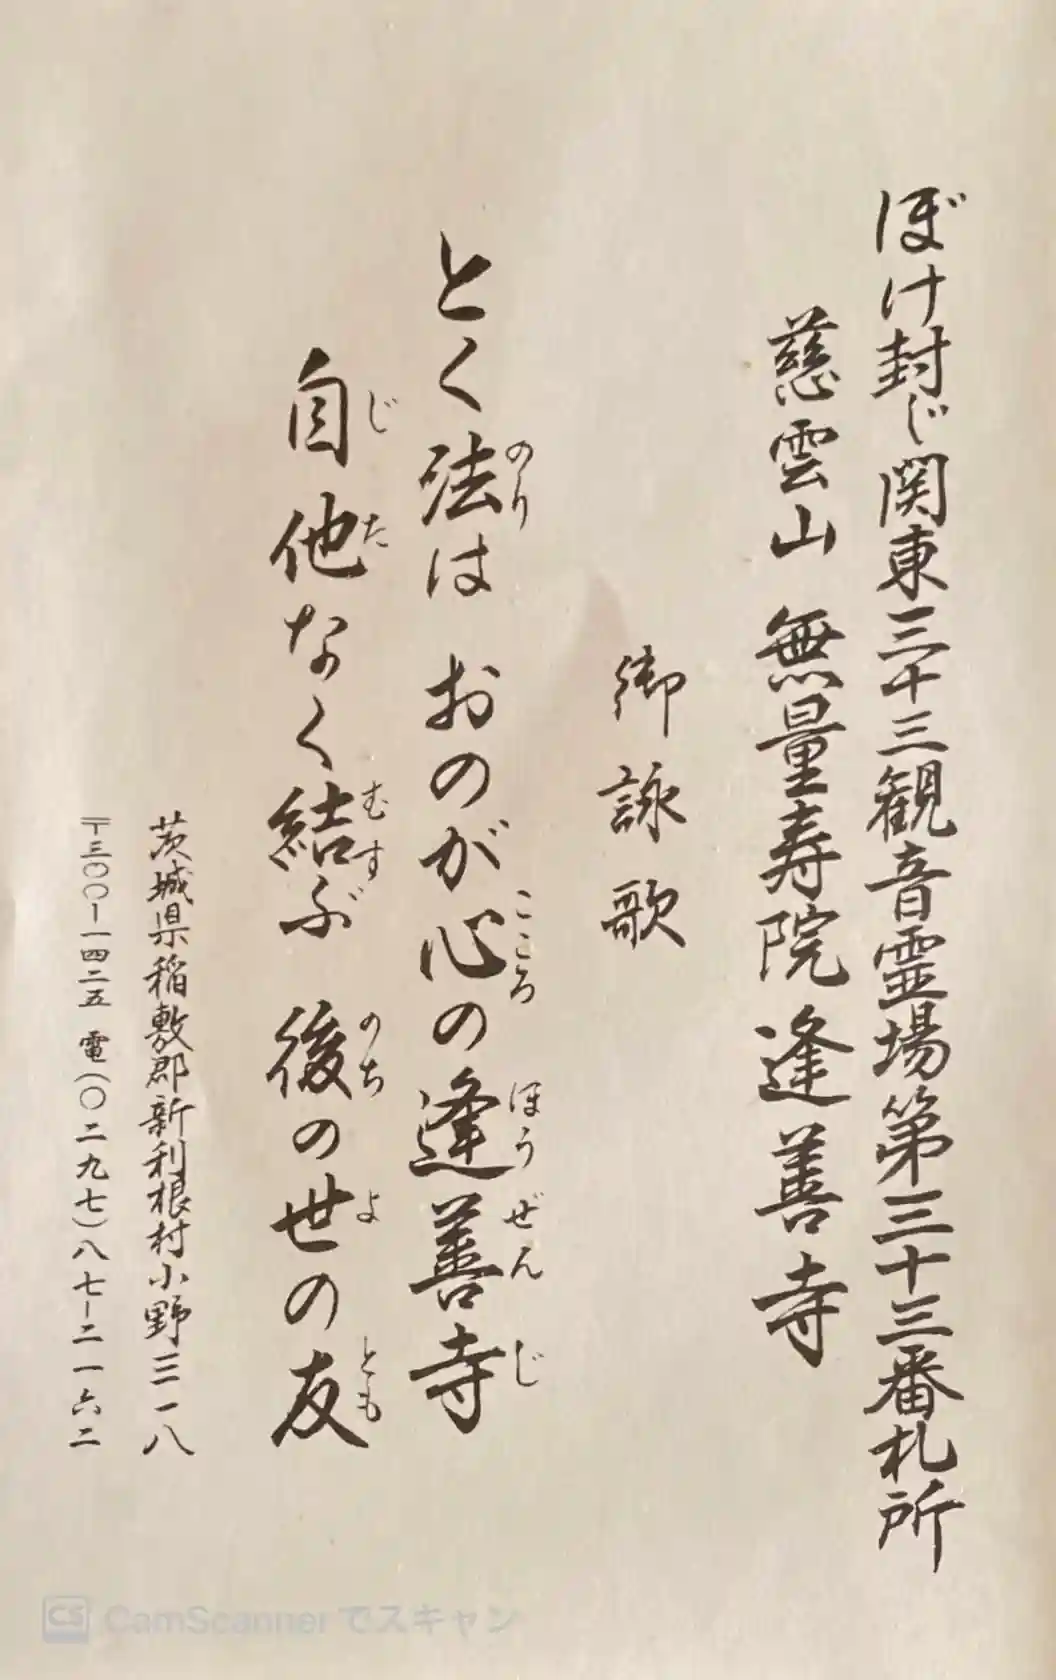 ぼけ封じ関東三十三観音霊場第三十三番札所
慈雲山 無量寿院 逢善寺
御詠歌
とく法は おのが心の逢善寺
のり こころ ほう ぜん じ
自他なく結ぶ 後の世の友
じ た むす のち よ とも
茨城県稲敷郡新利根村小野三一八
〒三〇〇ー一四二五 電(〇二九七)八七ー二一六二
CS CamScannerでスキャン